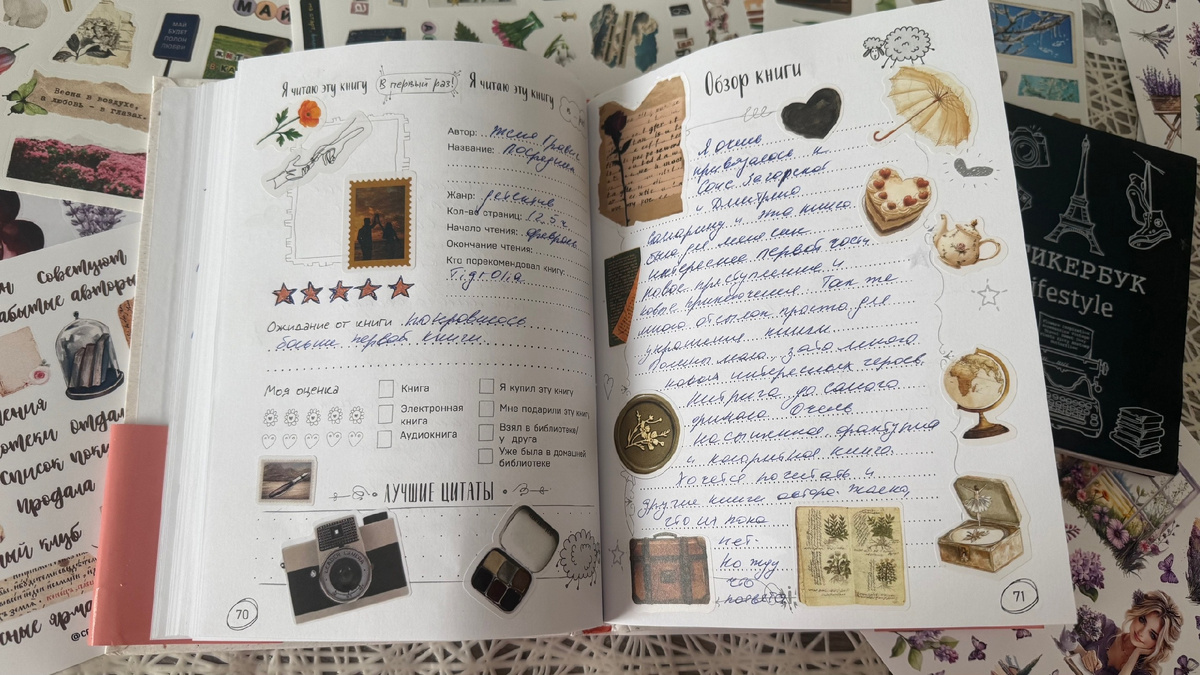 МАЙ
МАЙ
БУДЕТ
ПОЛОН
ЛЮБВИ
Весна в воздухе,
а любовь - в глазах.
Советуют
авторы
Список
Продала
клуб
Я читаю эту книгу в первый раз! Я читаю эту книгу
Автор:
Название: Посредник
Жанр: детектив
Кол-во страниц: 12.5 ч.
Начало чтения: февраль
Окончание чтения:
Кто порекомендовал книгу:
Ожидание от книги понравилась
больше первой книги
Моя оценка
Книга
Электронная
книга
Аудиокнига
Я купил эту книгу
Мне подарили эту книгу
Взял в библиотеке/
у друга
Уже была в домашней
библиотеке
ЛУЧШИЕ ЦИТАТЫ
70
Обзор книги
Я очень
привязалась к
Соне Загорской
и Дмитрию
и эта книга
была для меня
интереснее первой части,
новое преступление и
новые приключения. Так же
много отсылок просто для
украшения книги.
зато много
новых интересных героев.
Интрига до самого
финала. Очень
насыщенная, фактурная
и колоритная книга.
Хочется почитать и
другие книги автора. Жалко,
что их пока
нет.
Но жду
что
71
ИКЕРБУК
lifestyle